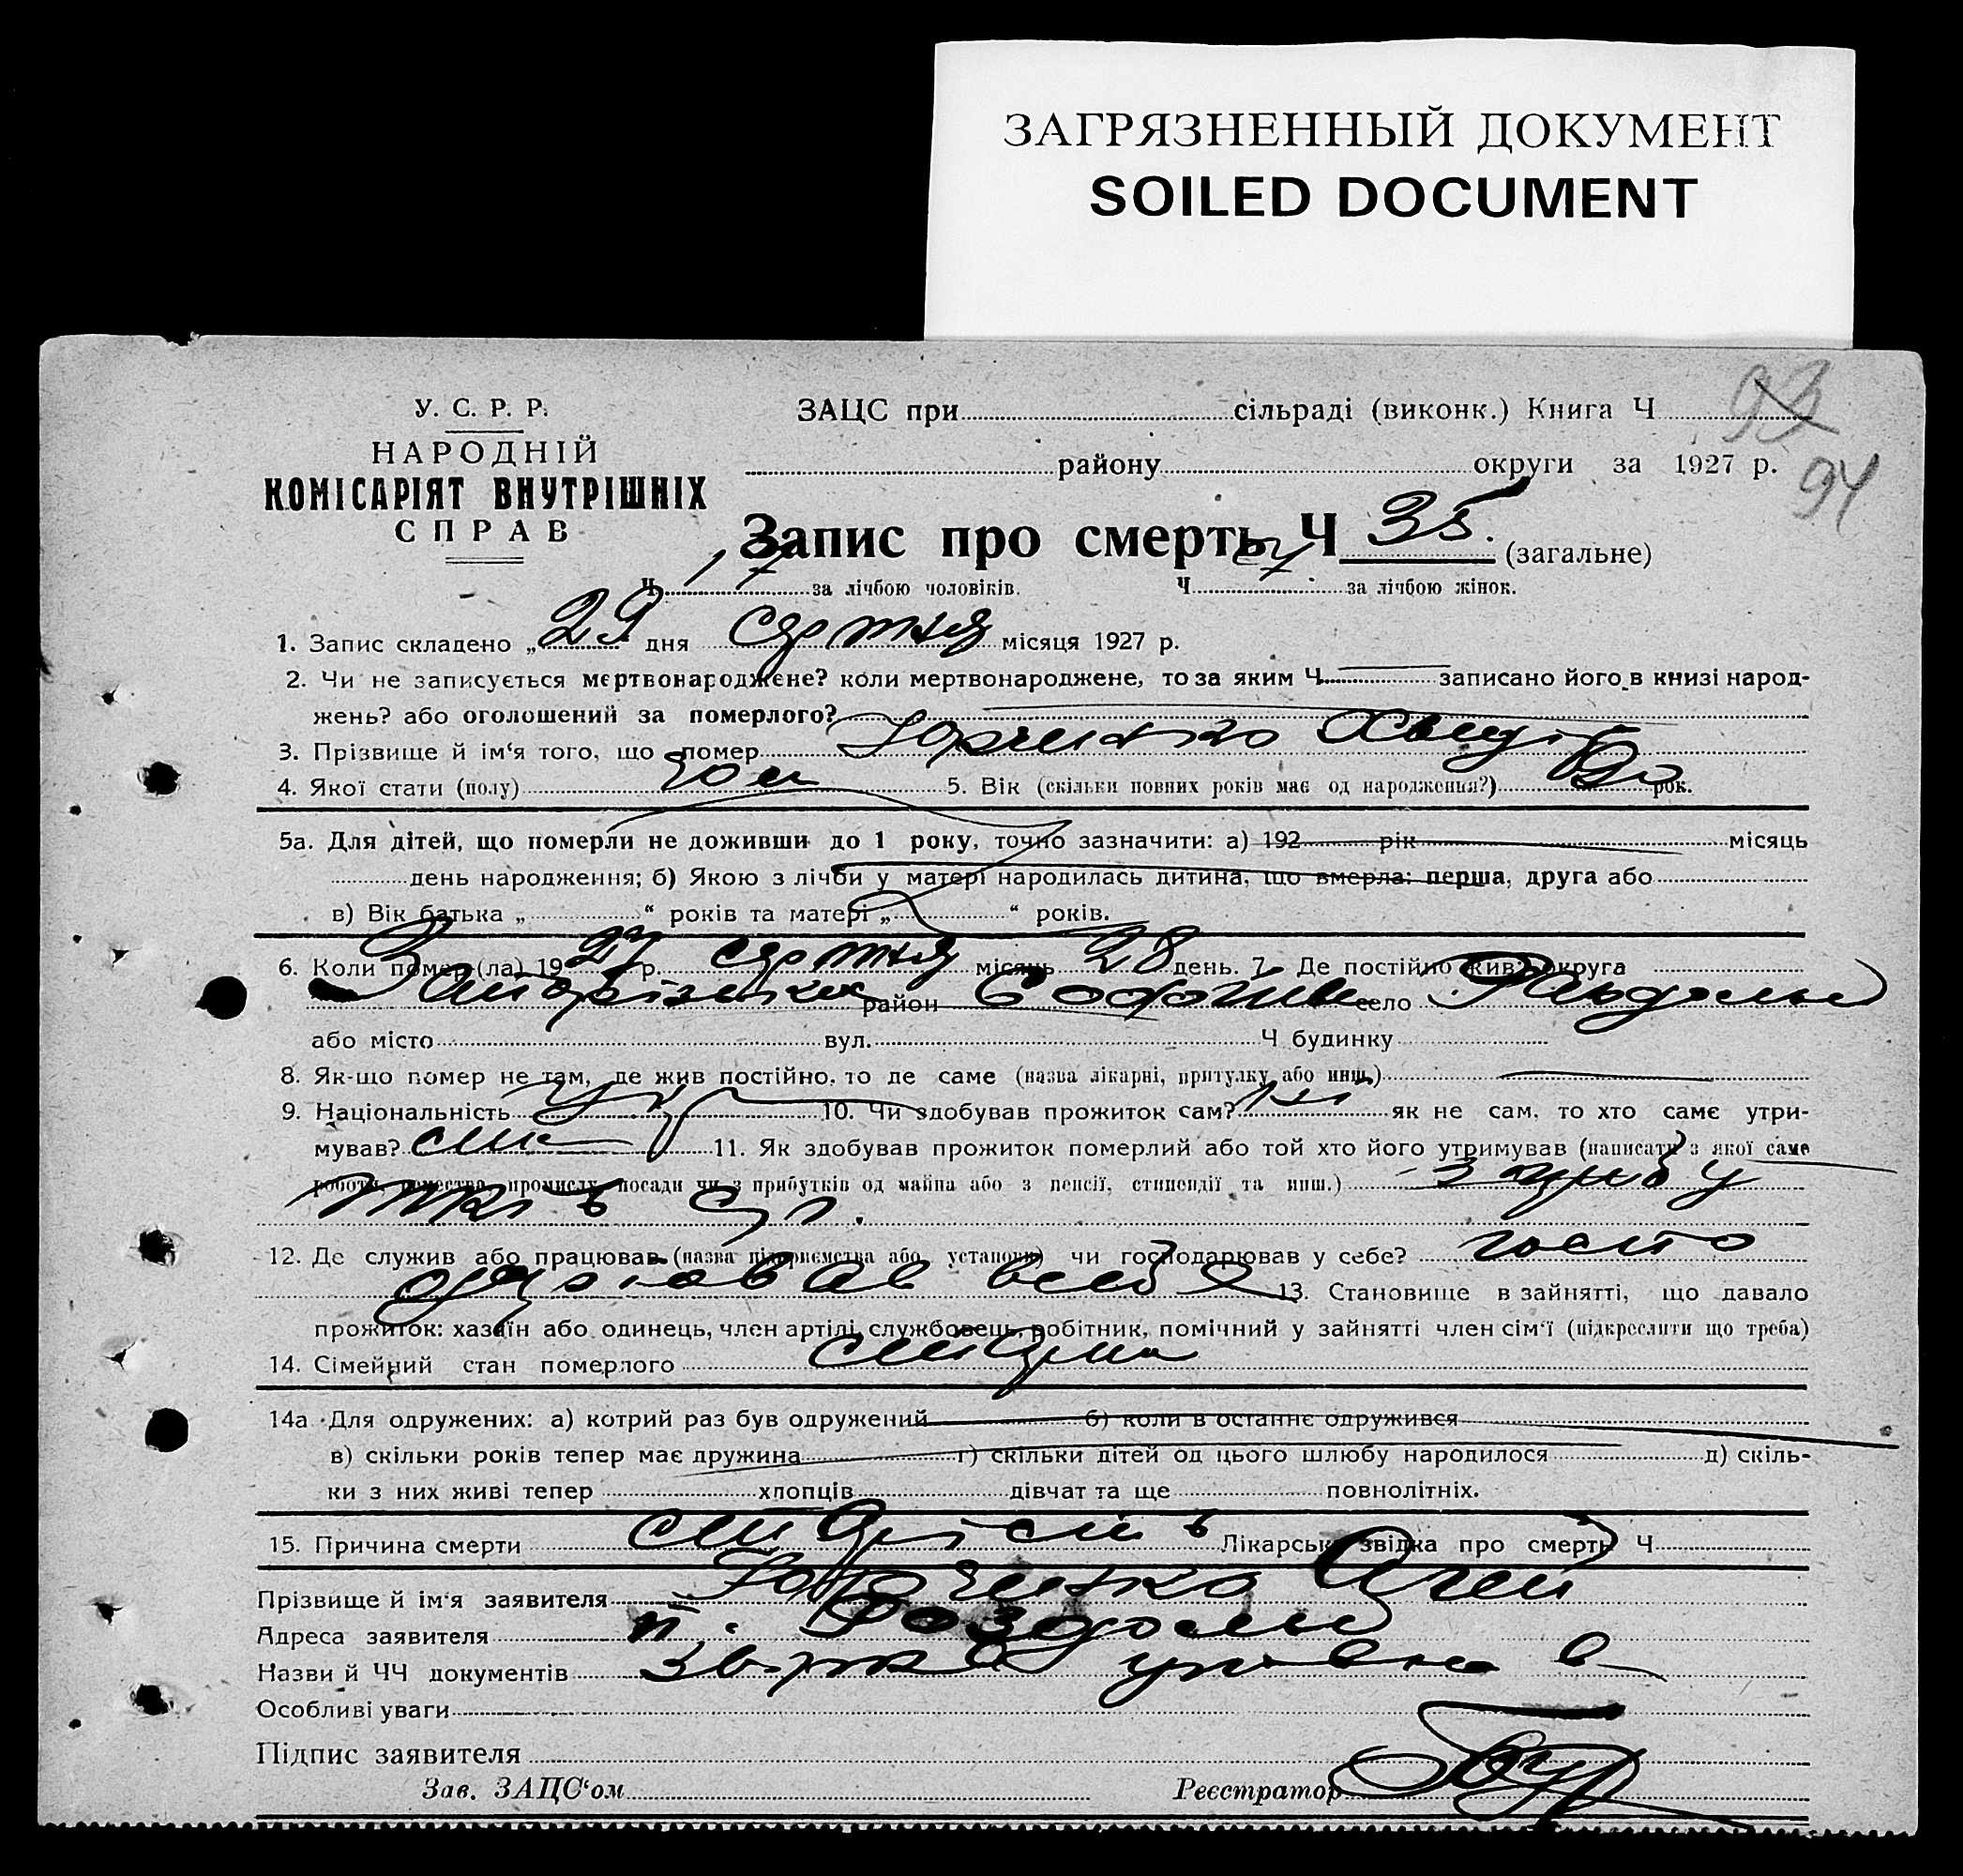 ЗАГРЯЗНЕННЫЙ ДОКУМЕНТ
SOILED DOCUMENT
93
94
У. С. Р. Р.
НАРОДНІЙ
КОМІСАРІЯТ ВНУТРІШНІХ
СПРАВ
ЗАЦС при сільраді (виконк.) Книга Ч
району округи за 1927 р.
Запис про смерть Ч 35. (загальне)
Ч 17 за лічбою чоловіків. Ч за лічбою жінок.
1. Запис складено „29 дня серпня місяця 1927 р.
2. Чи не записується мертвонароджене? коли мертвонароджене, то за яким Ч записано його в книзі народ-
жень? або оголошений за померлого?
3. Прізвище й ім‘я того, що помер Юрченко
4. Якої стати (полу) 5. Вік (скільки повних років має од народження?) рок.
5а. Для дітей, що померли не доживши до 1 року, точно зазначити: а) 192 рік місяць
день народження; б) Якою з лічби у матері народилась дитина, що вмерла: перша, друга або
в) Вік батька „ “ років та матері „ “ років.
6. Коли помер (ла) 1927 р. серпня місяць 28 день. 7. Де постійно жив: округа
Запорізька район село Роздолы
або місто вул. Ч будинку
8. Як-що помер не там, де жив постійно, то де саме (назва лікарні, притулку або инш.)
9. Національність Укр 10. Чи здобував прожиток сам? як не сам, то хто саме утри-
мував? син 11. Як здобував прожиток померлий або той хто його утримував (написати з якої саме
роботи, ремества, промислу, посади чи з прибутків од майна або з пенсії, стипендії та инш.)
12. Де служив або працював (назва підприємства або установи) чи господарював у себе? госпо
дарював всебе 13. Становище в зайнятті, що давало
прожиток: хазяїн або одинець, член артілі, службовець, робітник, помічний у зайнятті член сім‘ї (підкреслити що треба)
14. Сімейний стан померлого
14а Для одружених: а) котрий раз був одружений б) коли в останнє одружився
в) скільки років тепер має дружина г) скільки дітей од цього шлюбу народилося д) скіль-
ки з них живі тепер хлопців дівчат та ще повнолітніх.
15. Причина смерти Лікарська звідка про смерть Ч
Прізвище й ім‘я заявителя Юрченко
Адреса заявителя п. Роздолы
Назви й ЧЧ документів
Особливі уваги
Підпис заявителя
Зав. ЗАЦС‘ом Реєстратор